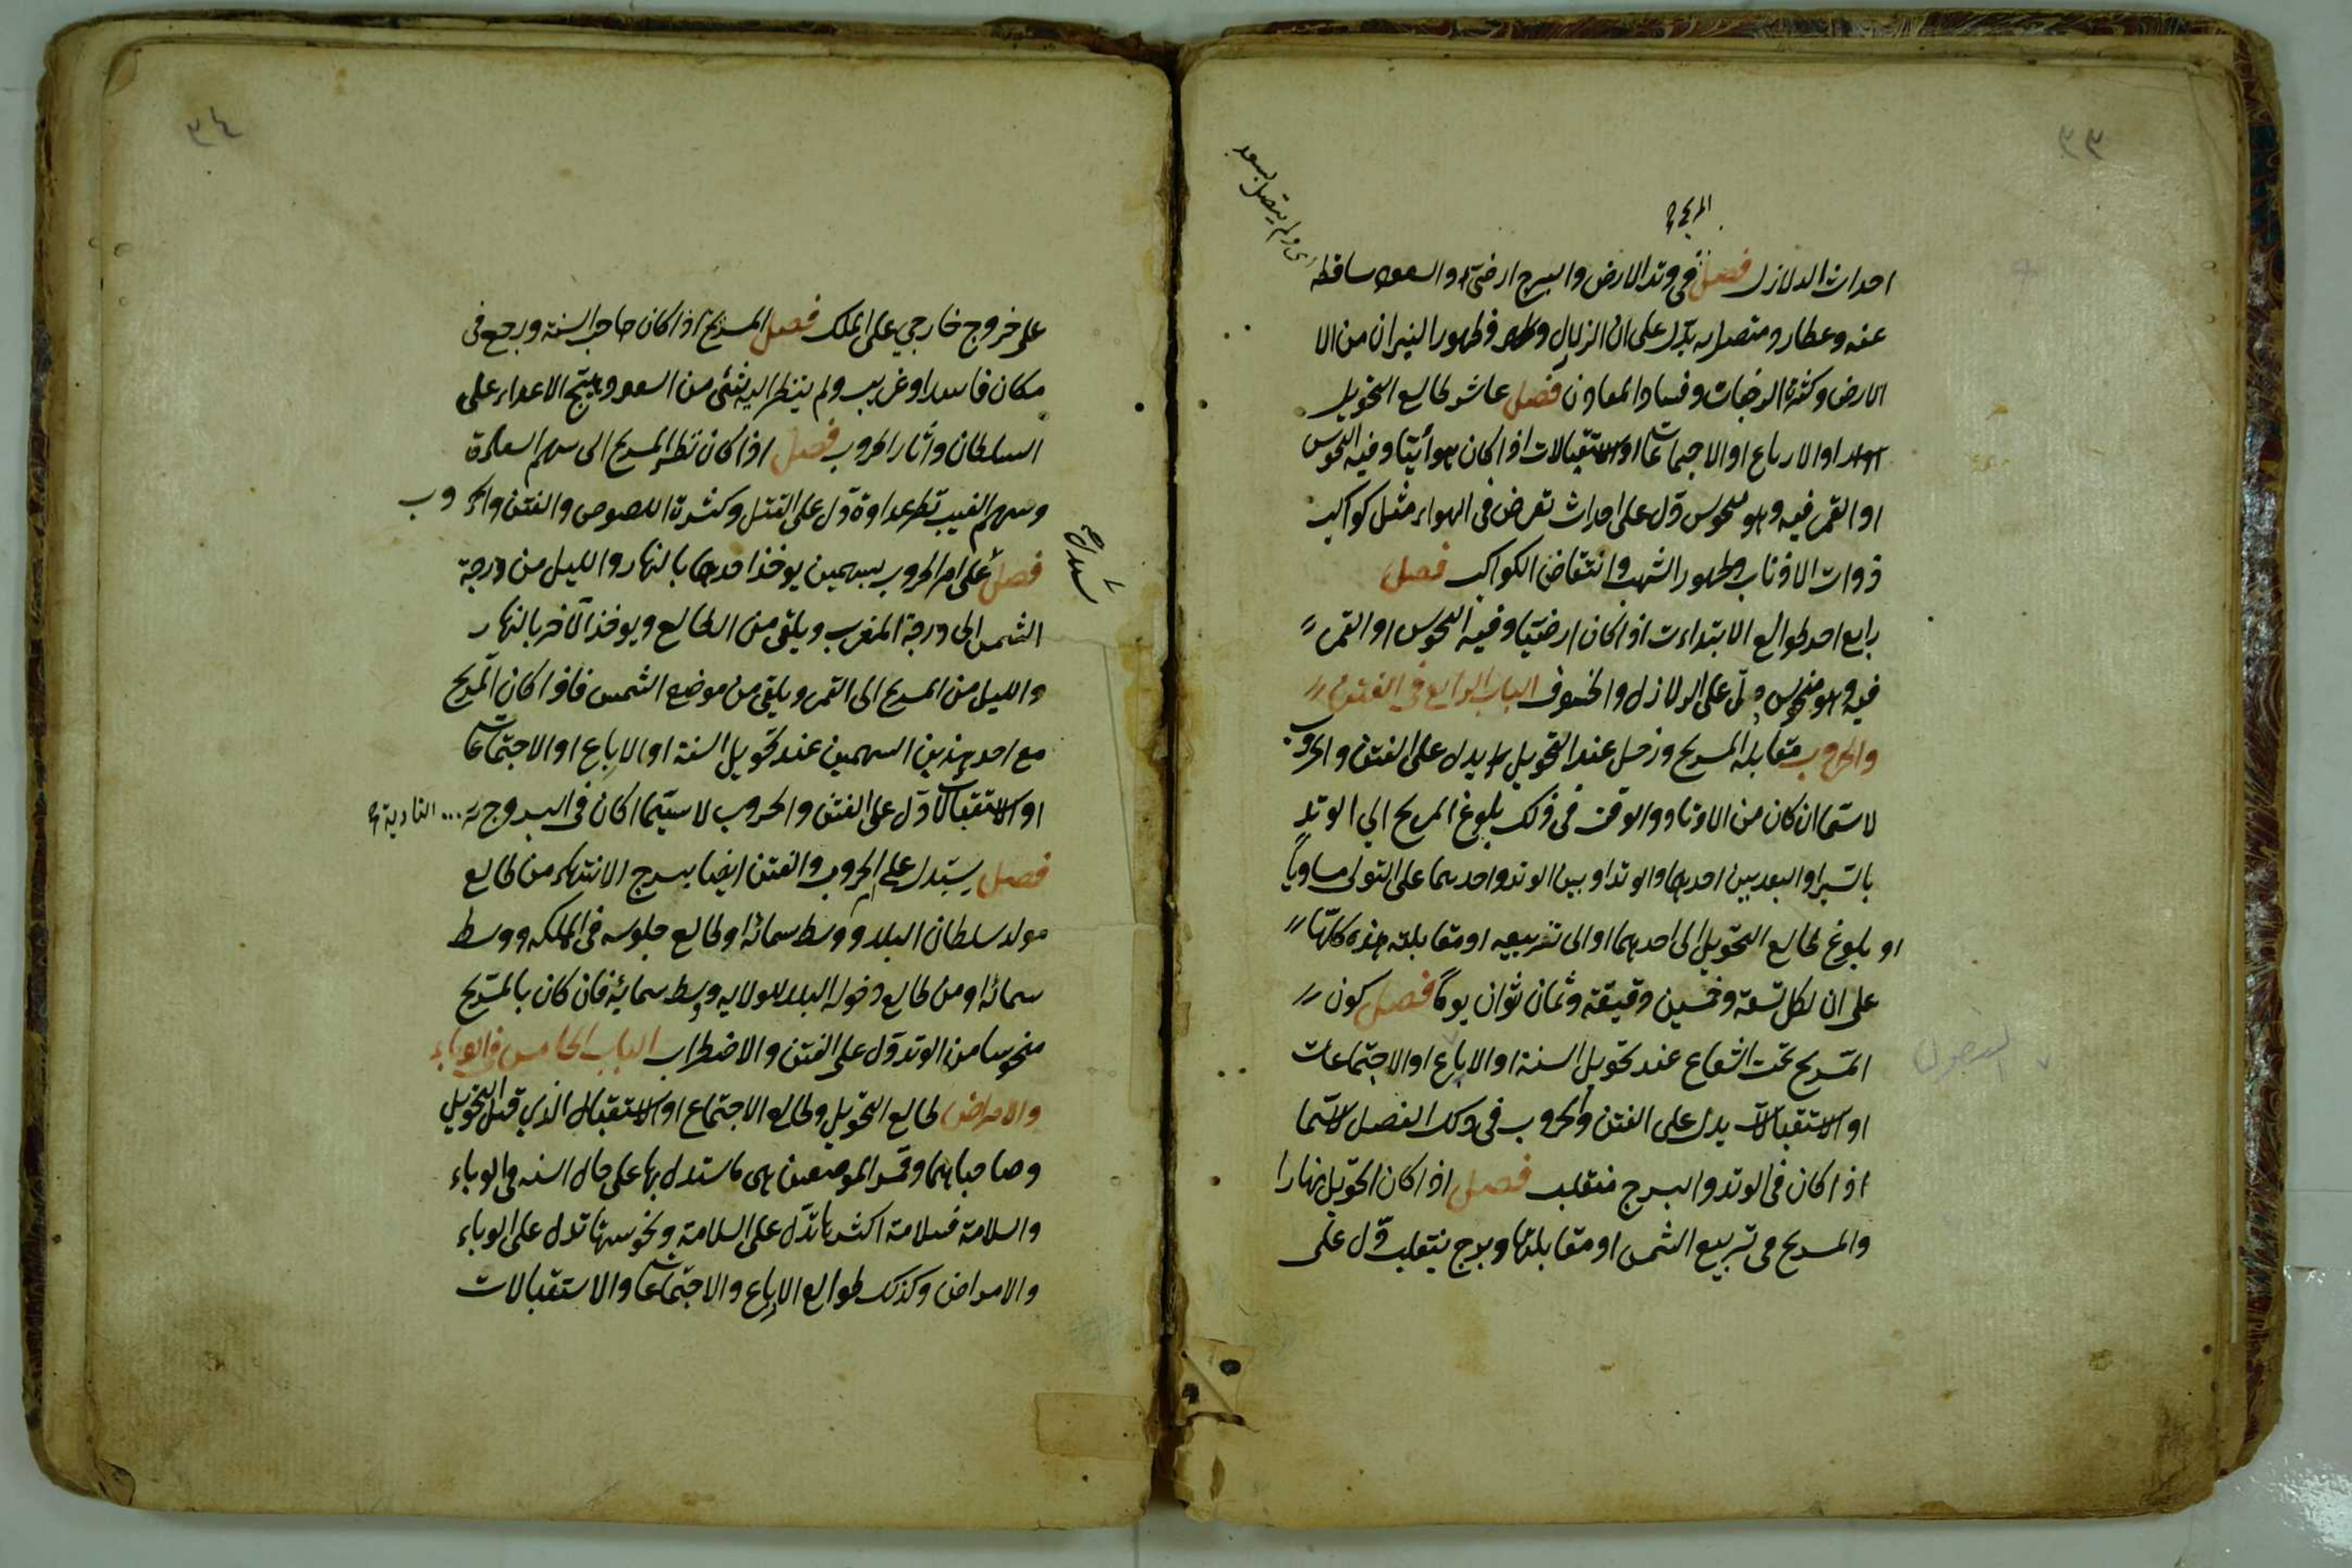 ٣٣
المريخ
احداث الدلازل فصل في وتد الارض والبرج ارضي والسعود ساقطه
اى ولم يتصل بسعد
عنه وعطارد متصل به يدل على ان الزلزال وظهور النيران من الا
الارض وكثرة الرجفات وفساد المعادن فصل عاشر طالع التحويل
او الارباع او الاجتماعات او الاستقبالات اذا كان هوائيا وفيه النحوس
او القمر فيه وهو منحوس دل على احداث تعرض في الهواء مثل كواكب
ذوات الاذناب وظهور الشهب وانتقاض الكواكب فصل
رابع احد طوالع الابتداءت اذا كان ارضيا وفيه النحوس او القمر
فيه وهو منحوس دل على الدلازل والخسوف الباب الرابع في الفتن
والحروب مقابلة المريخ وزحل عند التحويل يدل على الفتن والحروب
لاسيما ان كان من الاوتاد والوقت في ذلك بلوغ المريخ الي الوتد
بالتسيير او البعد بين احدهما والوتد او بين الوتد واحدهما على التولى مساويا
او بلوغ طالع التحويل الى احدهما او الى تربيعه او مقابلته هذه كلها
على ان لكل تسعة وخمسين دقيقة وثمان ثوان يوما فصل كون
المريخ تحت الشعاع عند تحويل السنة او الارباع او الاجتماعات
او الاستقبالات يدل على الفتن والحروب في ذلك الفصل لاسيما
اذا كان في الوتد والبرج منقلب فصل اذا كان التحويل نهارا
والمريخ في تربيع الشمس او مقابلتها وبرج ينقلب دل على
٣٤
على خروج خارجي على الملك فصل المريخ اذا كان صاحب السنة ورجع في
مكان فاسد او غريب ولم ينظر اليه شئ من السعود يهيج الاعداء على
السلطان واثار الحروب فصل اذا كان نظر المريخ الى سهم السعادة
وسهم الغيب نظر عداوة دل على القتل وكثرة اللصوص والفتن والحروب
فصل على امر الحروب بسهمين يوخذ احدهما بالنهار والليل من درجة
الشمس الى درجة المغرب ويلقى من الطالع ويوخذ الآخر بالنهار
والليل من المريخ الى القمر ويلقى من موضع الشمس فاذا كان المريخ
مع احد هذين السهمين عند تحويل السنة او الارباع او الاجتماعات
او الاستقبالات دل على الفتن والحروب لا سيما اكان في البروج ... النارية
فصل يستدل على الحروب والفتن ايضا ببرج الانتهاء من طالع
مولد سلطان البلد ووسط سمائه او طالع جلوسه في المملكه ووسط
سمائه او من طالع دخوله البلد للولايه ووسط سمائه فان كان بالمريخ
منحوسا من الوتد دل على الفتن والاضطراب الباب الخامس في الوباء
والامراض طالع التحويل وطالع الاجتماع او الاستقبال الذي قبل التحويل
وصاحباهما وقمر الموضعين هى ما يستدل بها على حال السنه في الوباء
والسلامة فسلامة اكثرها تدل على السلامة ونحوستها تدل على الوباء
والامراض وكذلك طوالع الارباع والاجتماعات والاستقبالات